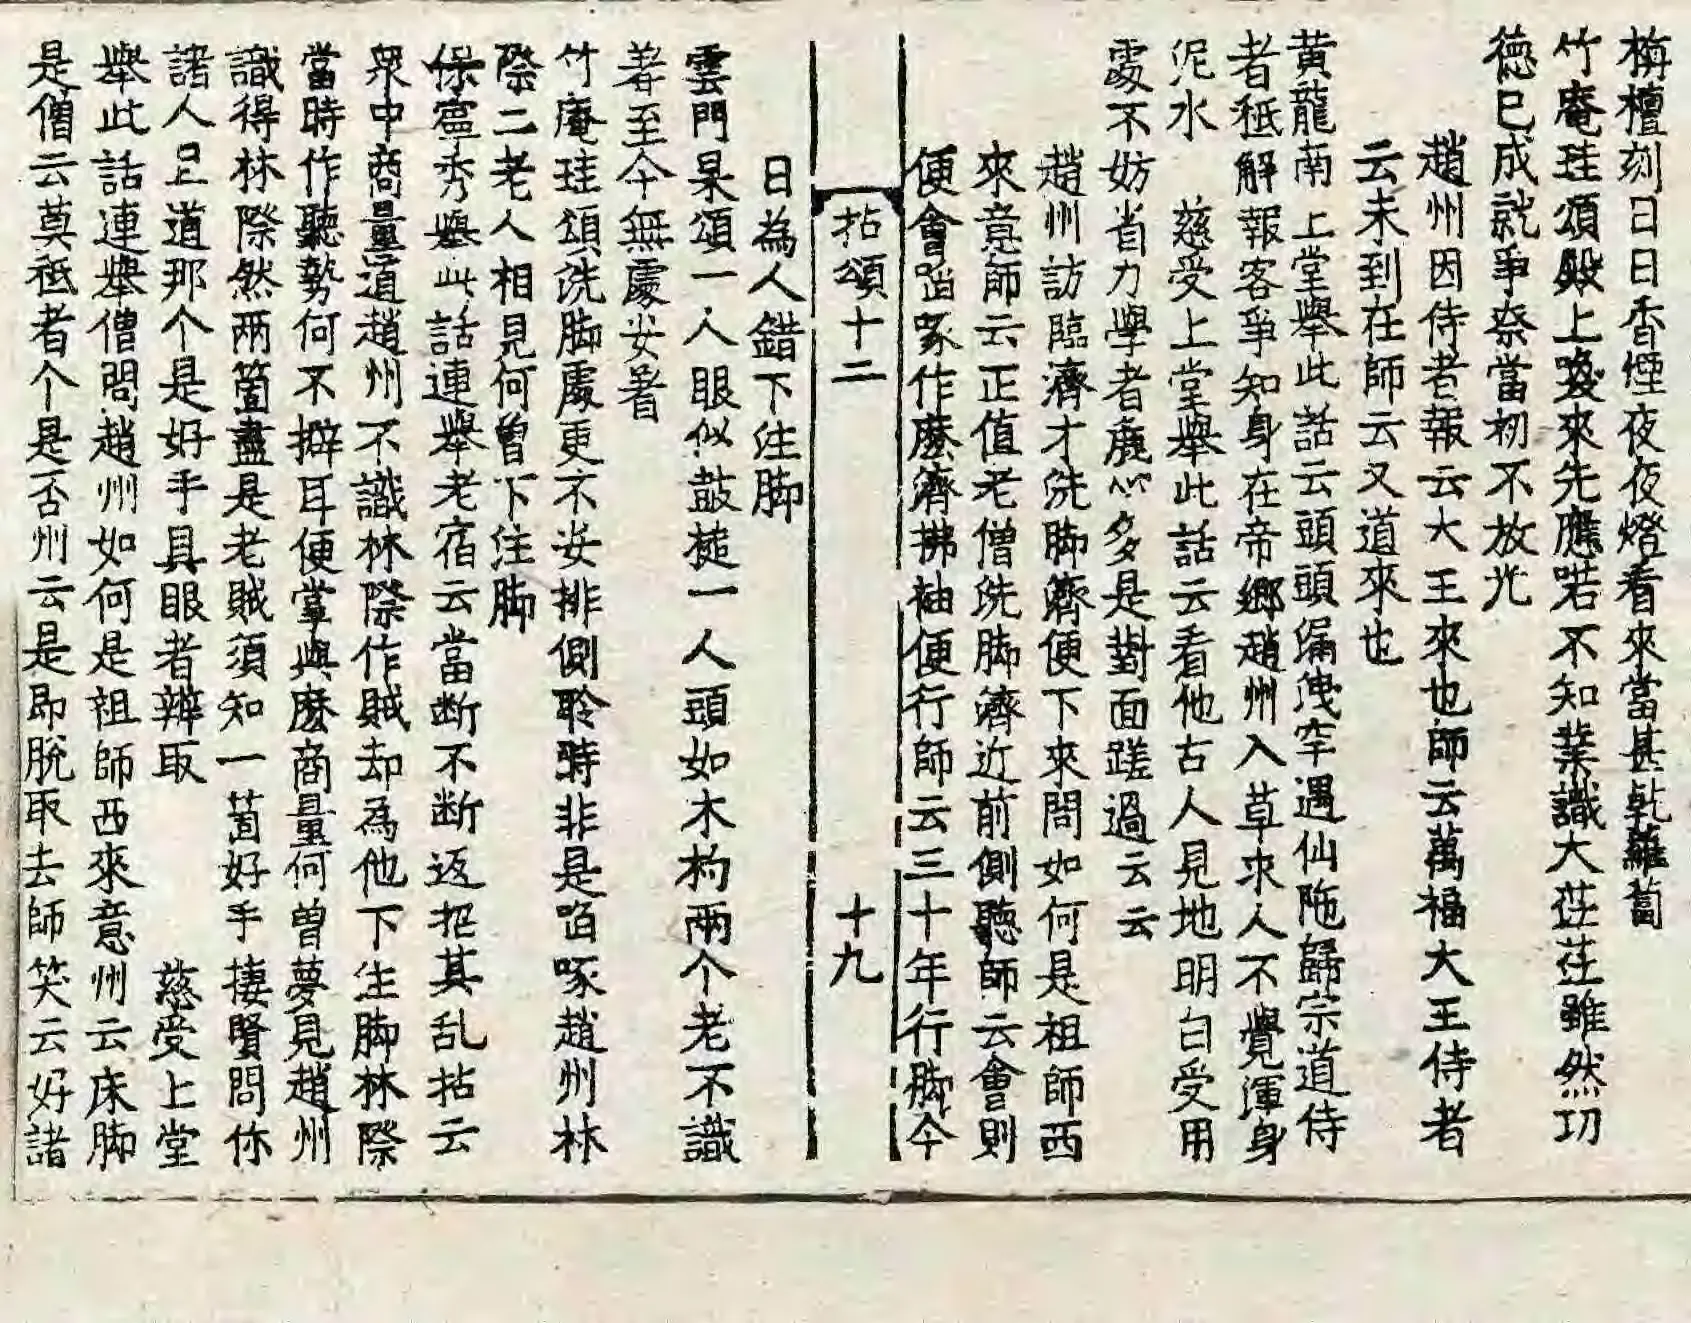 栴檀刻日日香煙夜夜燈看來當甚乹蘿蔔
竹庵珪頌殿上喚來先應喏不知業識大茫茫雖然功
德已成就爭奈當初不放光
趙州因侍者報云大王來也師云萬福大王侍者
云未到在師云又道來也
黃龍南上堂舉此話云頭頭漏洩罕遇仙陁歸宗道侍
者秪解報客爭知身在帝鄉趙州入草求人不覺渾身
泥水 慈受上堂舉此話云看他古人見地明白受用
處不妨省力學者麁心多是對面蹉過云云
趙州訪臨濟才洗脚濟便下來問如何是祖師西
來意師云正值老僧洗脚濟近前側聽師云會則
便會啗啄作麽濟拂袖便行師云三十年行脚今
拈頌十二 十九
日為人錯下注脚
雲門杲頌一人眼似鼓槌一人頭如木杓兩个老不識
羞至今無處安著
竹庵珪頌洗脚處更不安排側聆時非是啗啄趙州林
際二老人相見何曽下注脚
保寧秀舉此話連舉老宿云當断不断返招其乱拈云
衆中商量道趙州不識林際作賊却為他下注脚林際
當時作聽勢何不擗耳便掌與麽商量何曽夢見趙州
識得林際然兩箇盡是老賊須知一箇好手 棲賢問你
諸人且道那个是好手具眼者辨取 慈受上堂
舉此話連舉僧問趙州如何是祖師西來意州云床脚
是僧云莫秪者个是否州云是即脫取去師笑云好諸